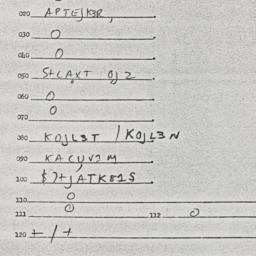 020 APTEJK3R,
030 0
040 0
050 S+CAXT OJ2
060 0
070 0
080 KOJL3T / KOJL3N
090 KACUV2M
100 $)+jATK81S
110 0
111 0 112 0
120 + / +